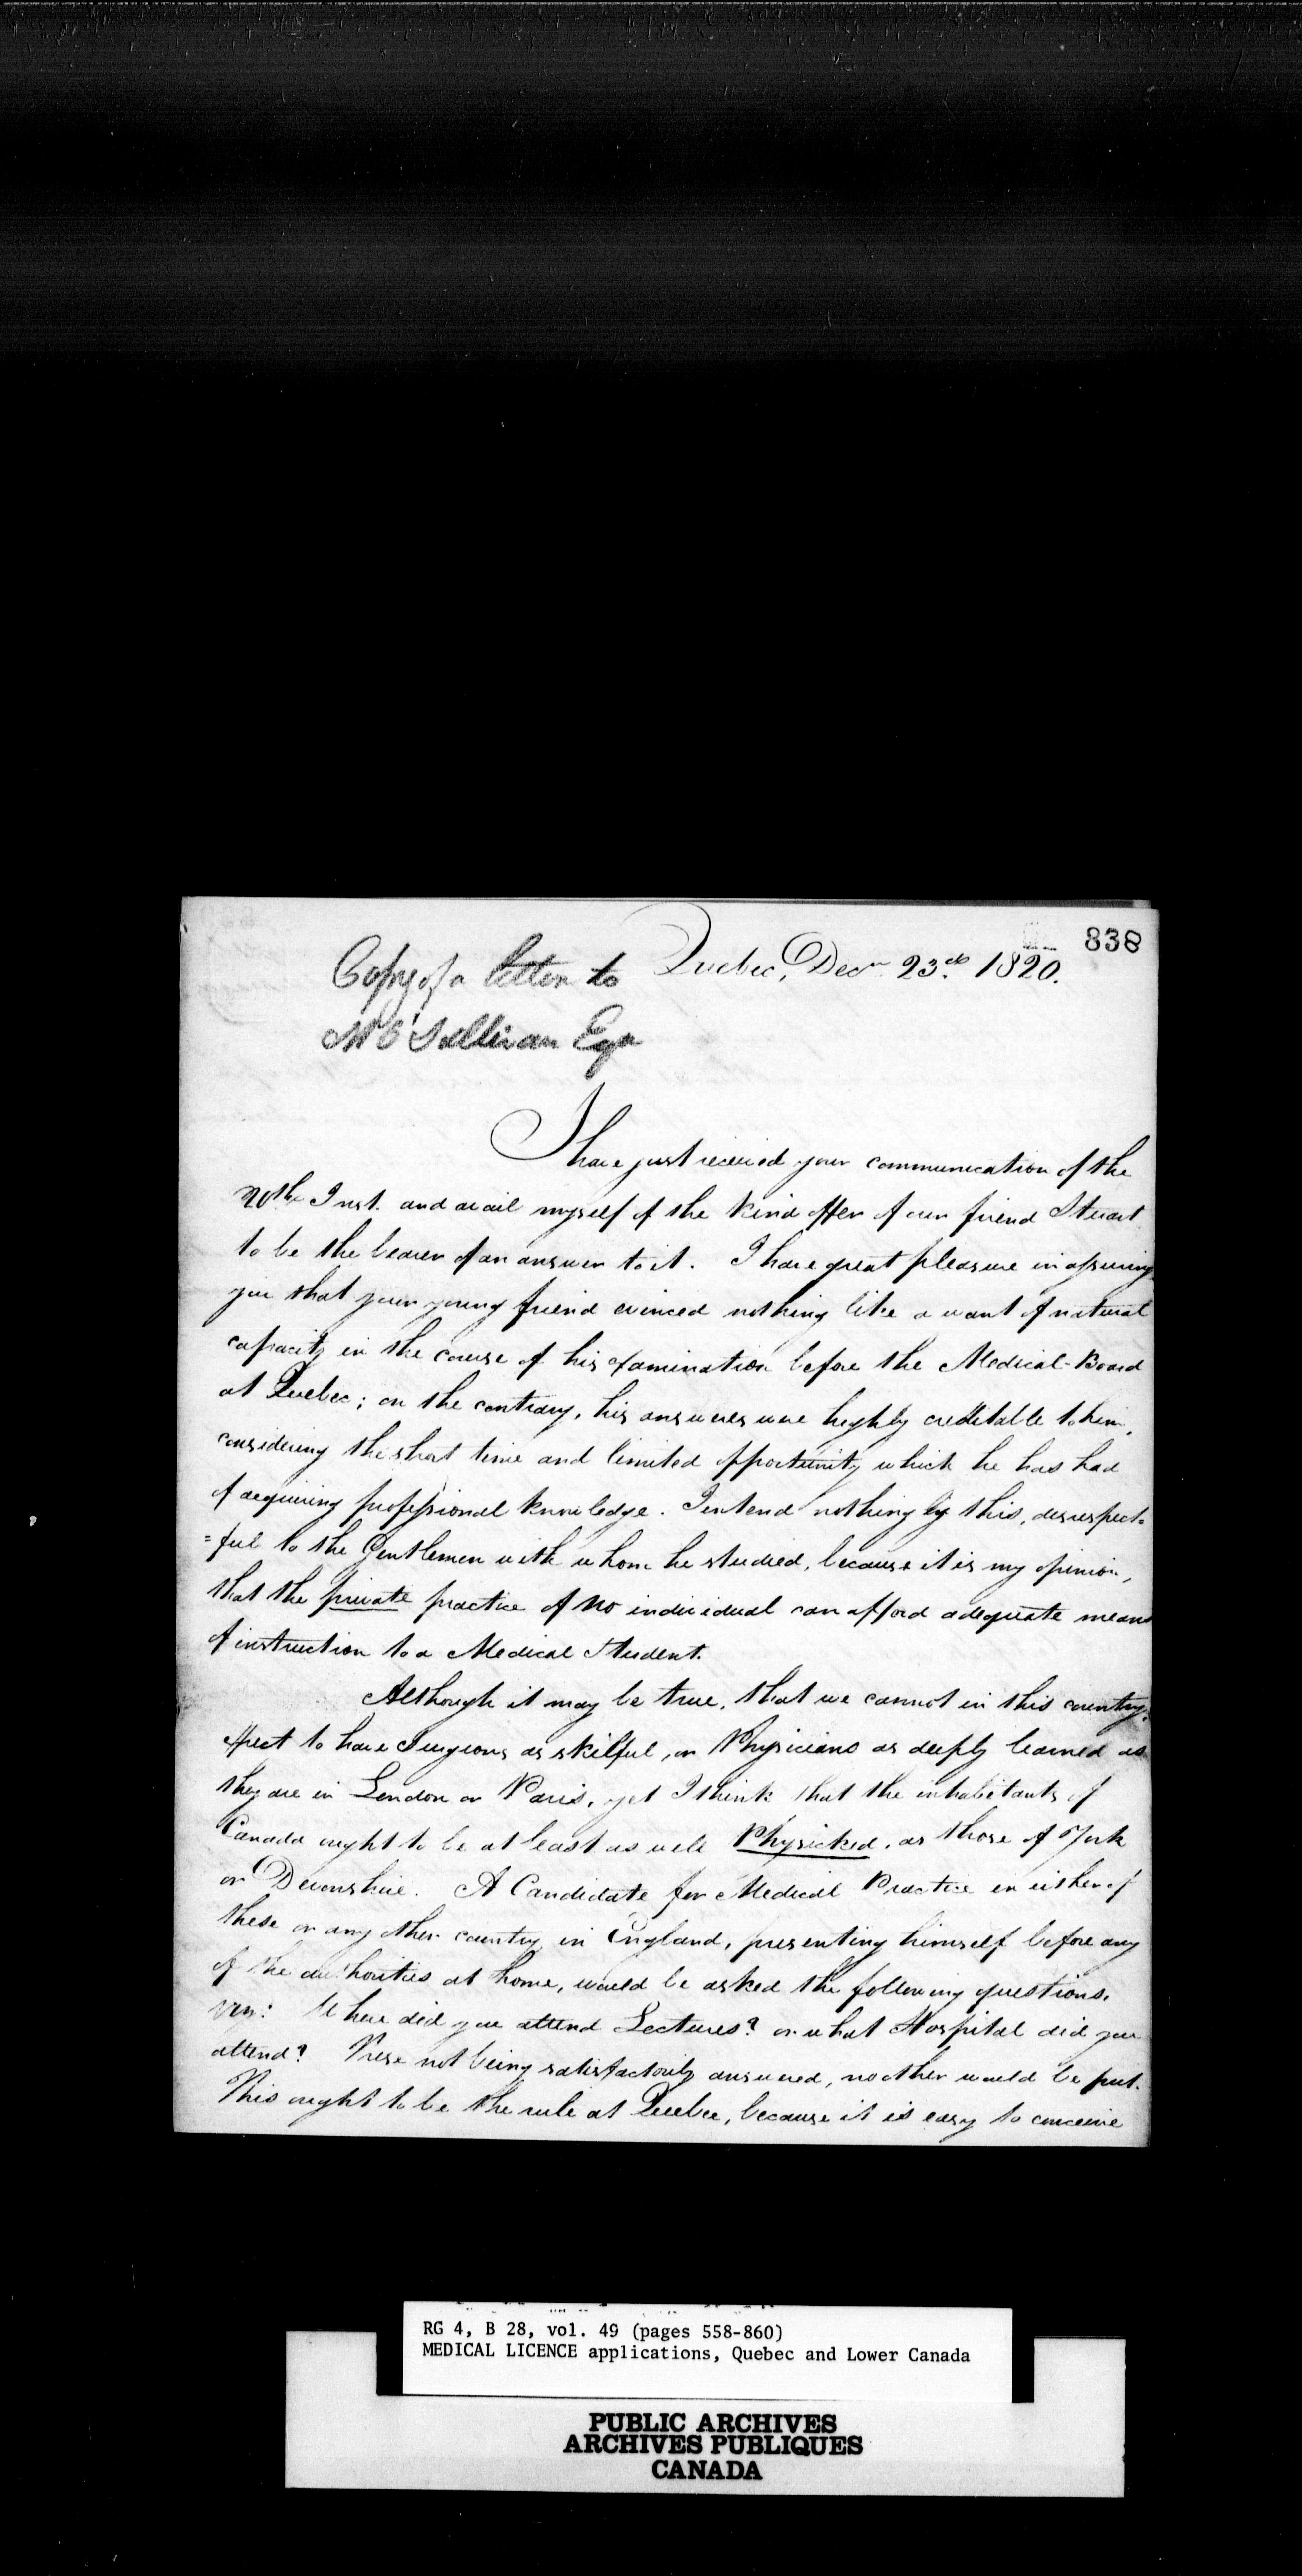 838
Copy of a letter to
Quebec, Decr. 23d. 1820.
M O'Sullivan Eqr
I have just received your communication of the
20th Inst. and avail myself of the kind offer of our friend Stuart
to be the bearer of an answer to it. I have great pleasure in assuring
you that your young friend evinced nothing like a want of natural
capacity in the course of his examination before the Medical-Board
at Quebec; on the contrary, his answers were highly creditable to him,
considering the short time and limited opportunity which he has had
of acquiring professional knowledge. I intend nothing by this, disrespect=
=ful to the Gentlemen with whom he studied, because it is my opinion,
that the private practice of no individual can afford adequate means
of instruction to a Medical Student.
Although it may be true, that we cannot in this country,
expect to have Surgeons as skilful, or Physicians as deeply learned as
they are in London or Paris, yet I think that the inhabitants of
Canada ought to be at least as well Physicked, as those of York
or Devonshire. A Candidate for Medical Practice in either of
these or any other country in England, presenting himself before any
of the authorities at home, would be asked the following questions,
viz: Where did you attend Lectures? or what Hospital did you
attend? These not being satisfactorily answered, no other would be put.
This ought to be the rule at Quebec, because it is easy to conceive
RG 4, B 28, vol. 49 (pages 558-860)
MEDICAL LICENCE applications, Quebec and Lower Canada
PUBLIC ARCHIVES
ARCHIVES PUBLIQUES
CANADA